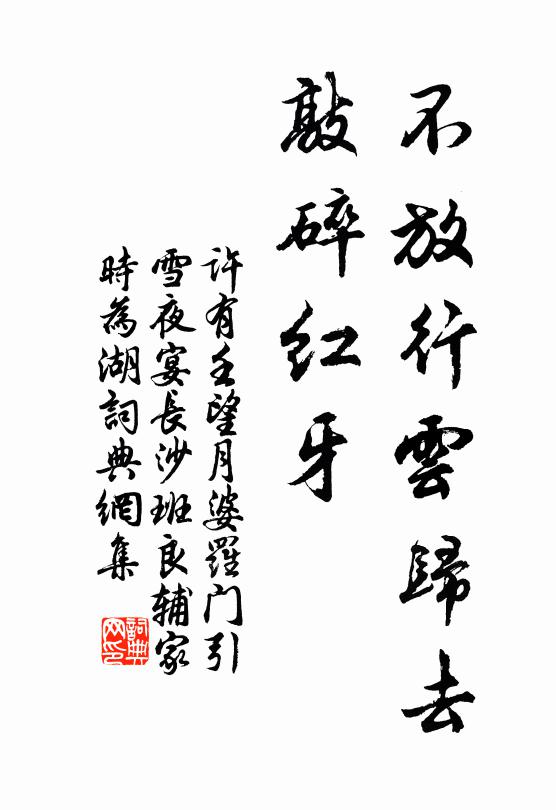 不放行雲歸去
敲碎紅牙
許有壬望月婆羅门引
雪夜宴長沙班良輔家
時為湖詞典網集
詞典网印